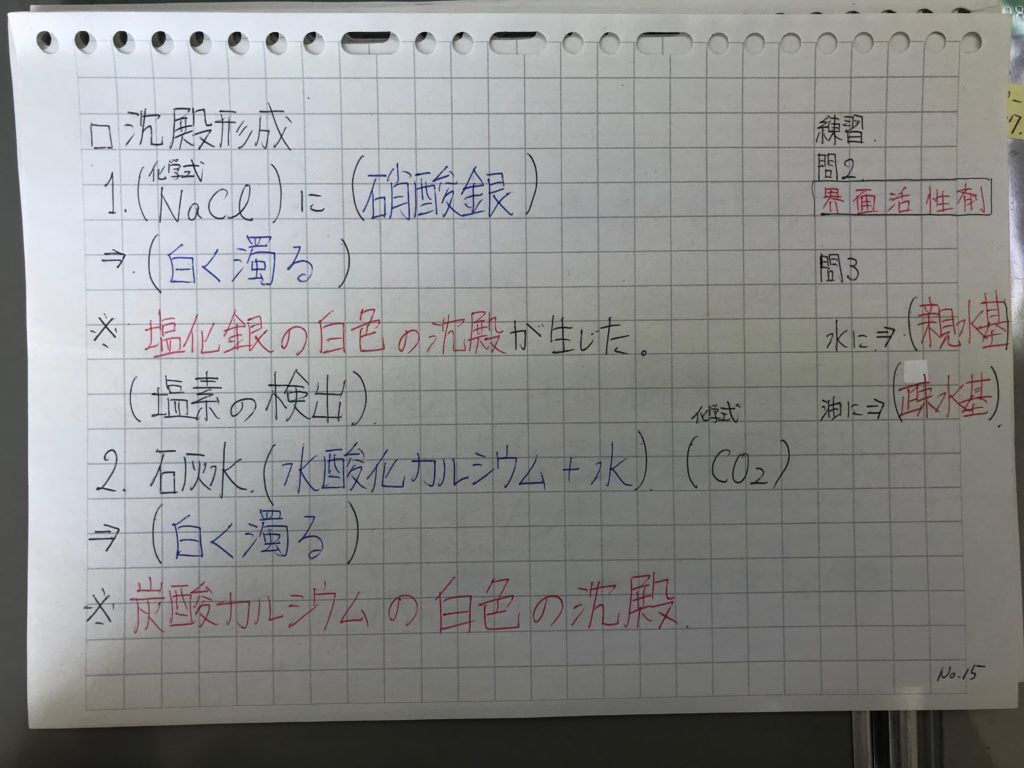 □ 沈殿形成
化学式
1.(NaCl)に(硝酸銀)
⇒(白く濁る)
※ 塩化銀の白色の沈殿が生じた。
(塩素の検出)
化学式
2. 石灰水.(水酸化カルシウム+水).(CO2)
⇒(白く濁る)
※ 炭酸カルシウムの白色の沈殿.
練習.
問2
界面活性剤
問3
水に⇒(親水基)
油に⇒(疎水基).
No.15